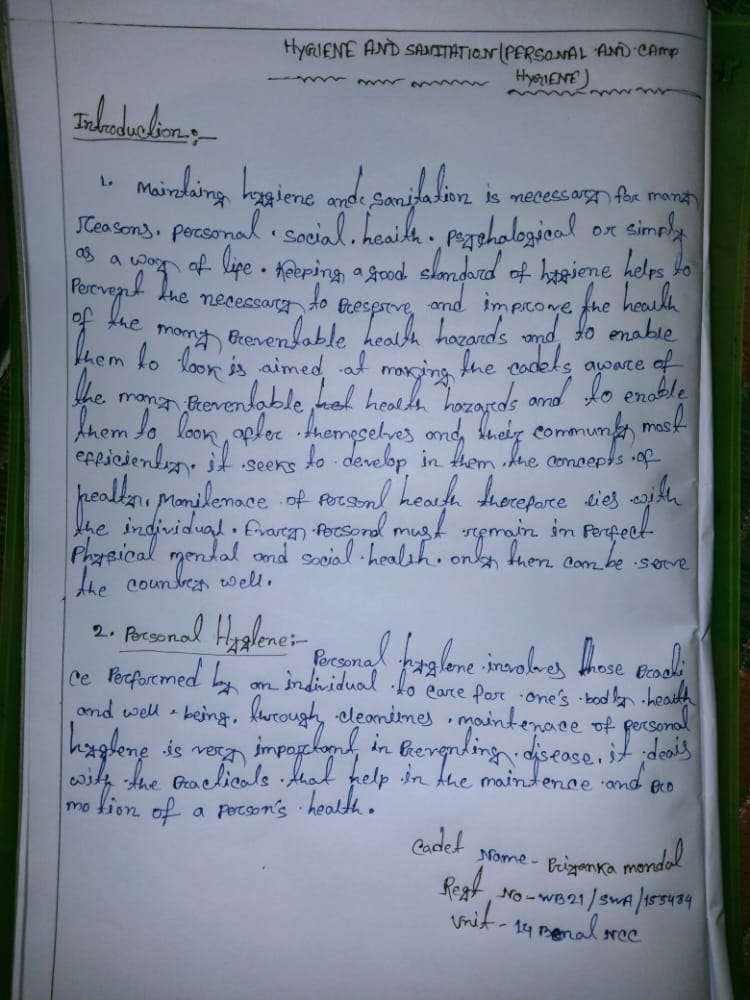 HYGIENE AND SANITATION (PERSONAL AND CAMP
HYGIENE)
Introduction :-
1. Maintaing hygiene and sanitation is necessary for many
reasons. personal. social. health. psyghalogical or simply
as a way of life. Keeping a good standard of hygiene helps to
Percvent the necessary to Preserve and improve the health
of the many Preventable health hazards and to enable
them to look is aimed at making the cadets aware of
the many Preventable het health hazards and to enable
them to look after themeselves and their community most
efficiently. it seeks to develop in them the concepts of
healty. Manilenace of Personl health therefore lies with
the individual. Evarcy Personal must remain in Perfect
Physical mental and social health. only then can be serve
the country well.
2. Personal Hyglene:-
Personal hyglene involves those Practi
ce Performed by an individual to care for one's bodly health
and well-being, through cleanlines. maintenace of personal
hyglene is very important in Preventing disease. it deals
with the Practicals that help in the maintence and Pro
motion of a person's health.
Cadet Name - Priyanka mondal
Regt No - WB21/SWA/153484
Unit - 14 Benal NCC